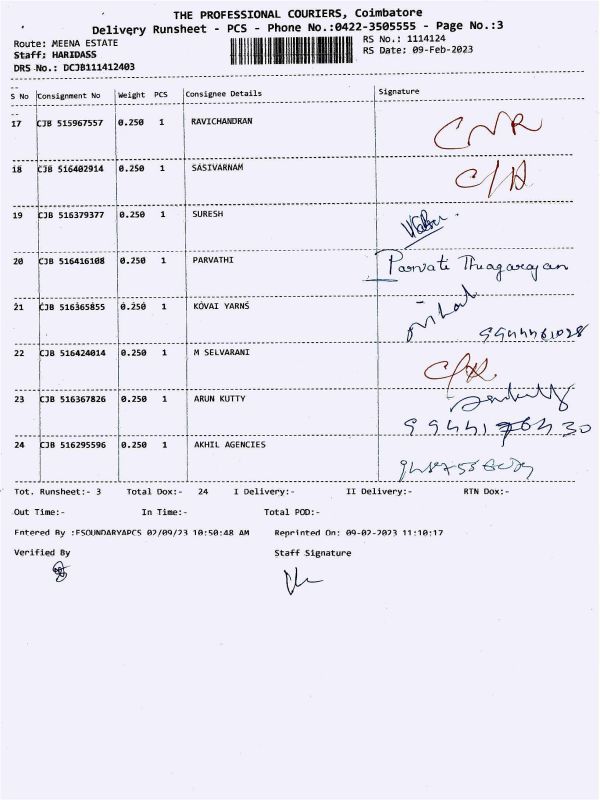 THE PROFESSIONAL COURIERS, Coimbatore
Delivery Runsheet - PCS - Phone No.:0422-3505555 - Page No.:3
Route: MEENA ESTATE
RS No.: 1114124
Staff: HARIDASS
RS Date: 09-Feb-2023
DRS No.: DCJB111412403
S No Consignment No Weight PCS Consignee Details Signature
17 CJB 515967557 0.250 1 RAVICHANDRAN CNR
18 CJB 516402914 0.250 1 SASIVARNAM
19 CJB 516379377 0.250 1 SURESH
20 CJB 516416108 0.250 1 PARVATHI Parvati Thiagarajan
21 CJB 516365855 0.250 1 KOVAI YARNS
22 CJB 516424014 0.250 1 M SELVARANI
23 CJB 516367826 0.250 1 ARUN KUTTY
24 CJB 516295596 0.250 1 AKHIL AGENCIES
Tot. Runsheet:- 3 Total Dox:- 24 I Delivery:- II Delivery:- RTN Dox:-
Out Time:- In Time:- Total POD:-
Entered By :FSOUNDARYAPCS 02/09/23 10:50:48 AM Reprinted On: 09-02-2023 11:10:17
Verified By Staff Signature